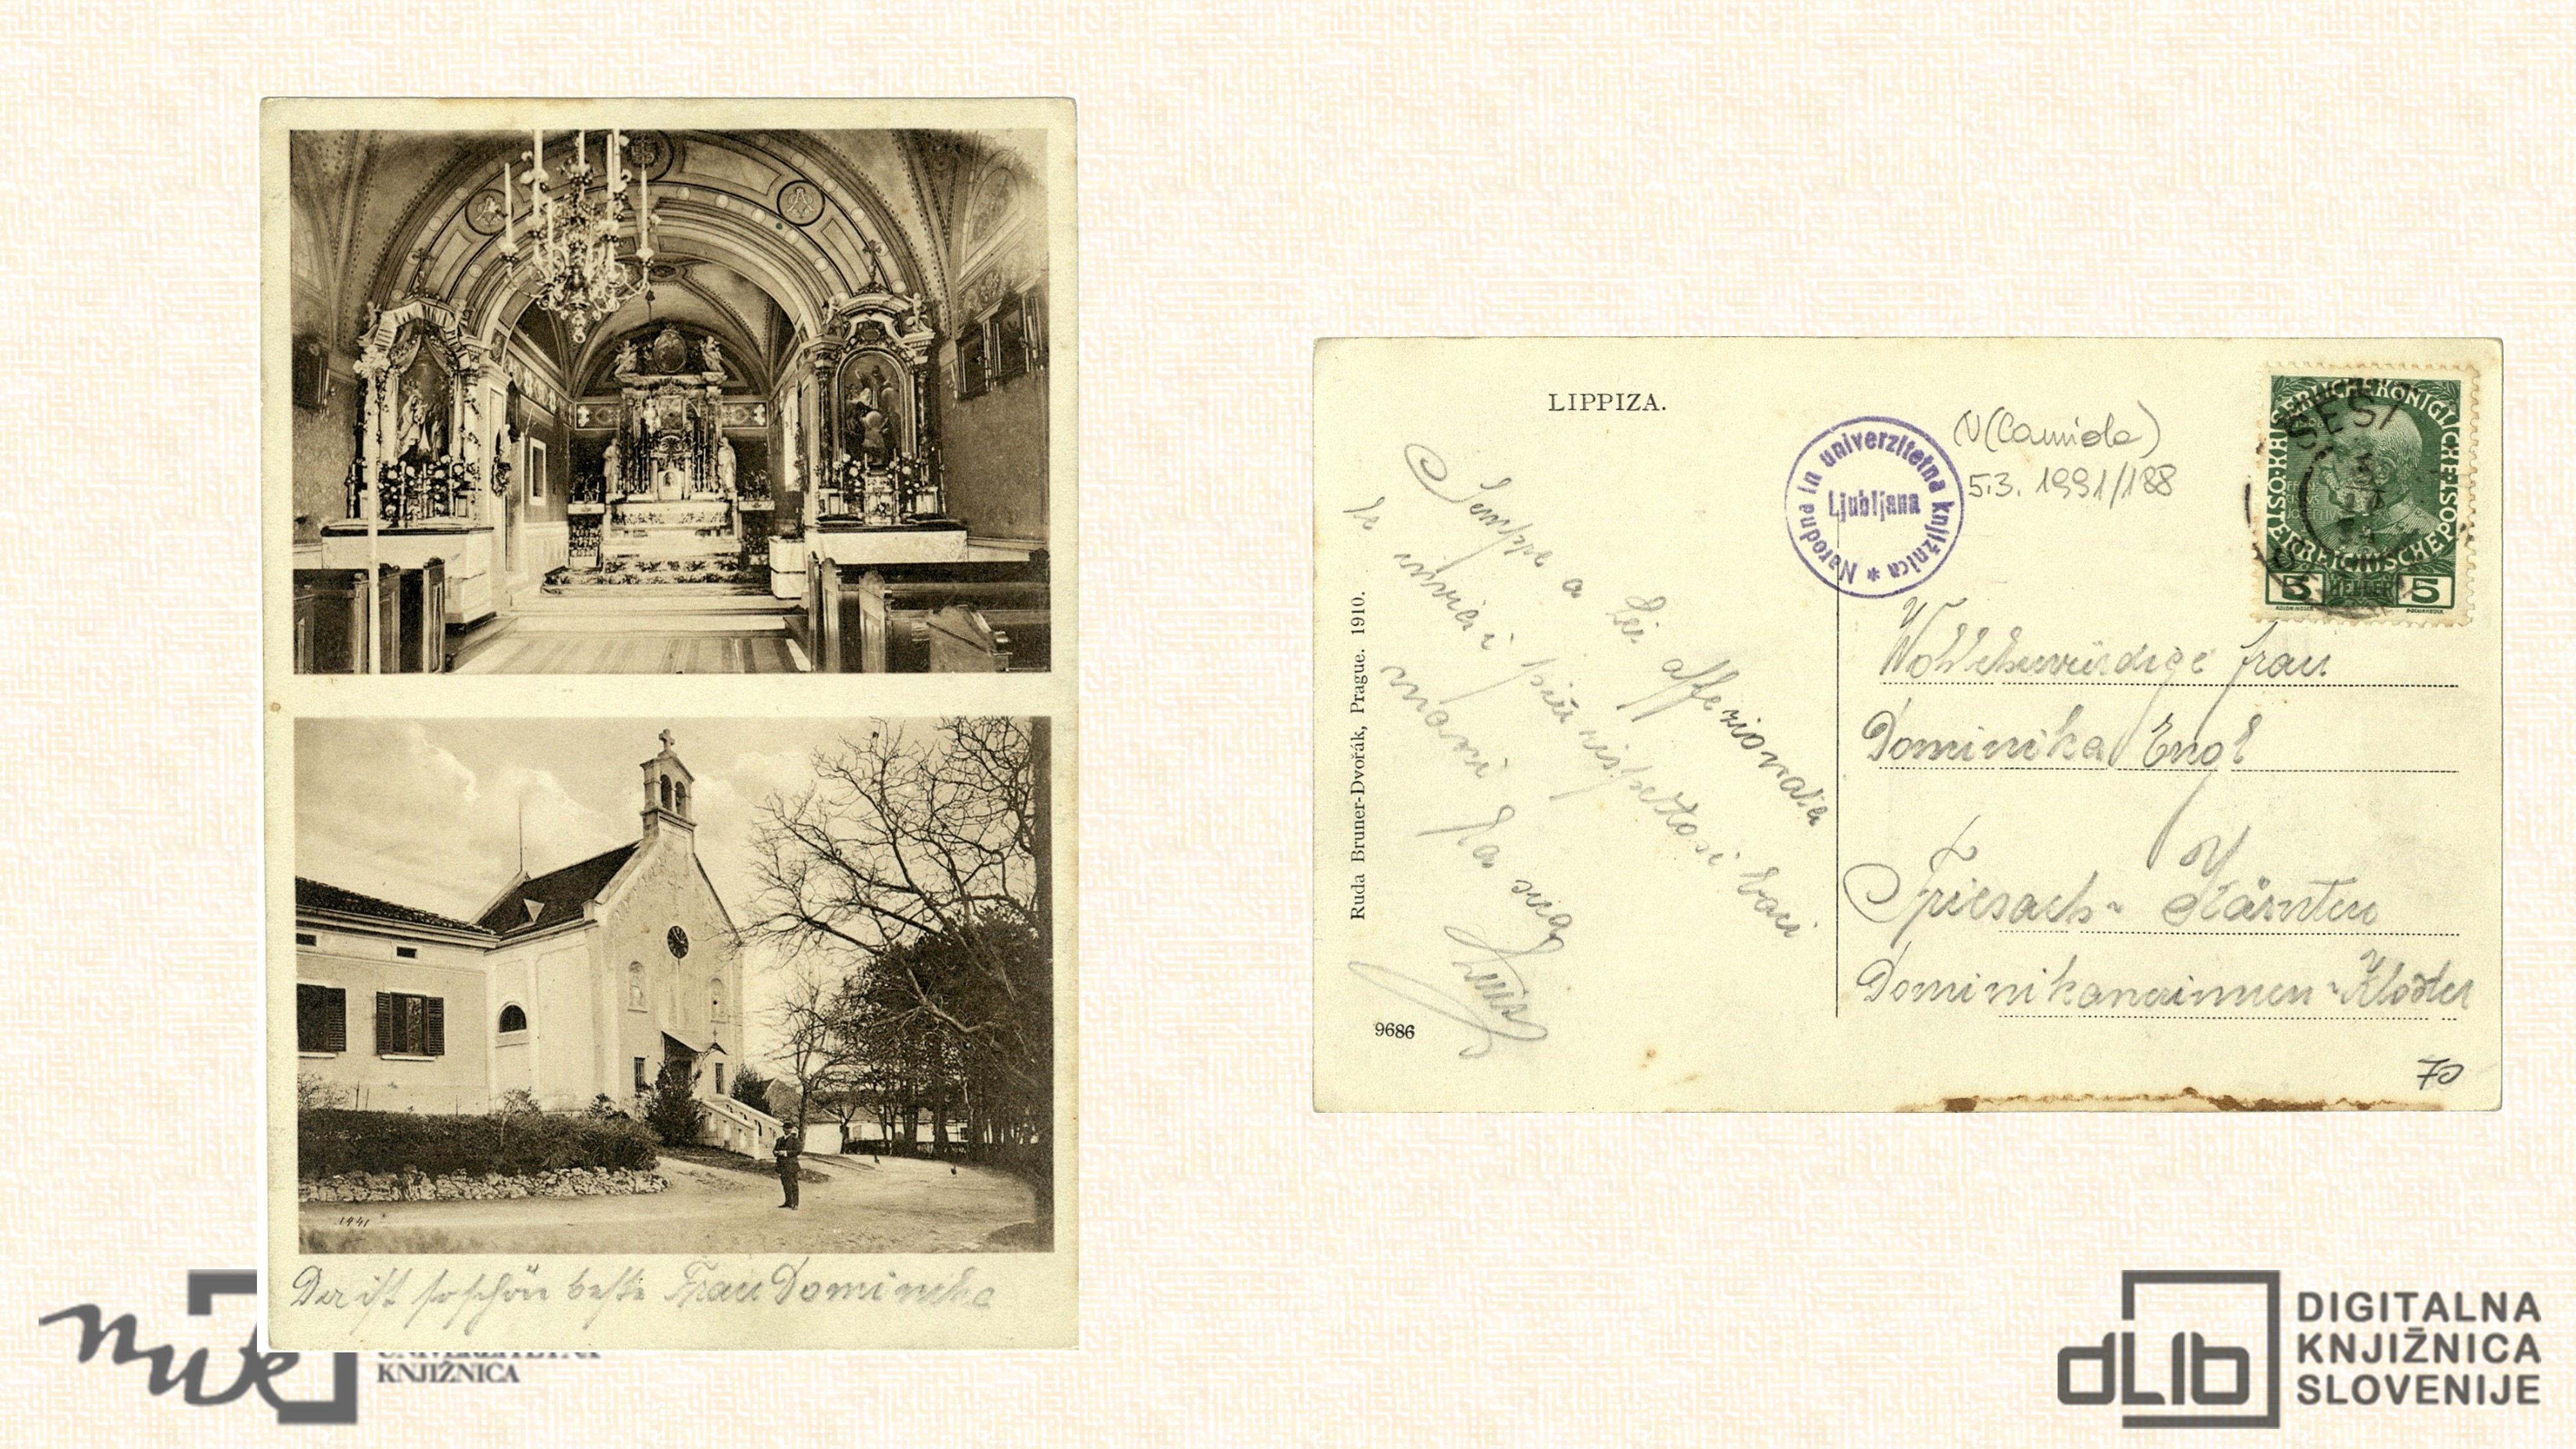 1941
Der ist so schön beste Frau Dominika
LIPPIZA.
Narodna in univerzitetna knjižnica *
Ljubljana
5.3. 1991/188
KÖNIGLICHE POST
ÖSTERREICHISCHE
5 HELLER 5
SESA
Sempre a Lei affezionata
Le invio i più rispettosi baci
mani la sua
Luisa
Ruda Bruner-Dvořák, Prague. 1910.
9686
Wohlehrwürdige Frau
Dominika Engl
Friesach - Kärnten
Dominikanerinnen-Kloster
70
KNJIŽNICA
dLib
DIGITALNA
KNJIŽNICA
SLOVENIJE